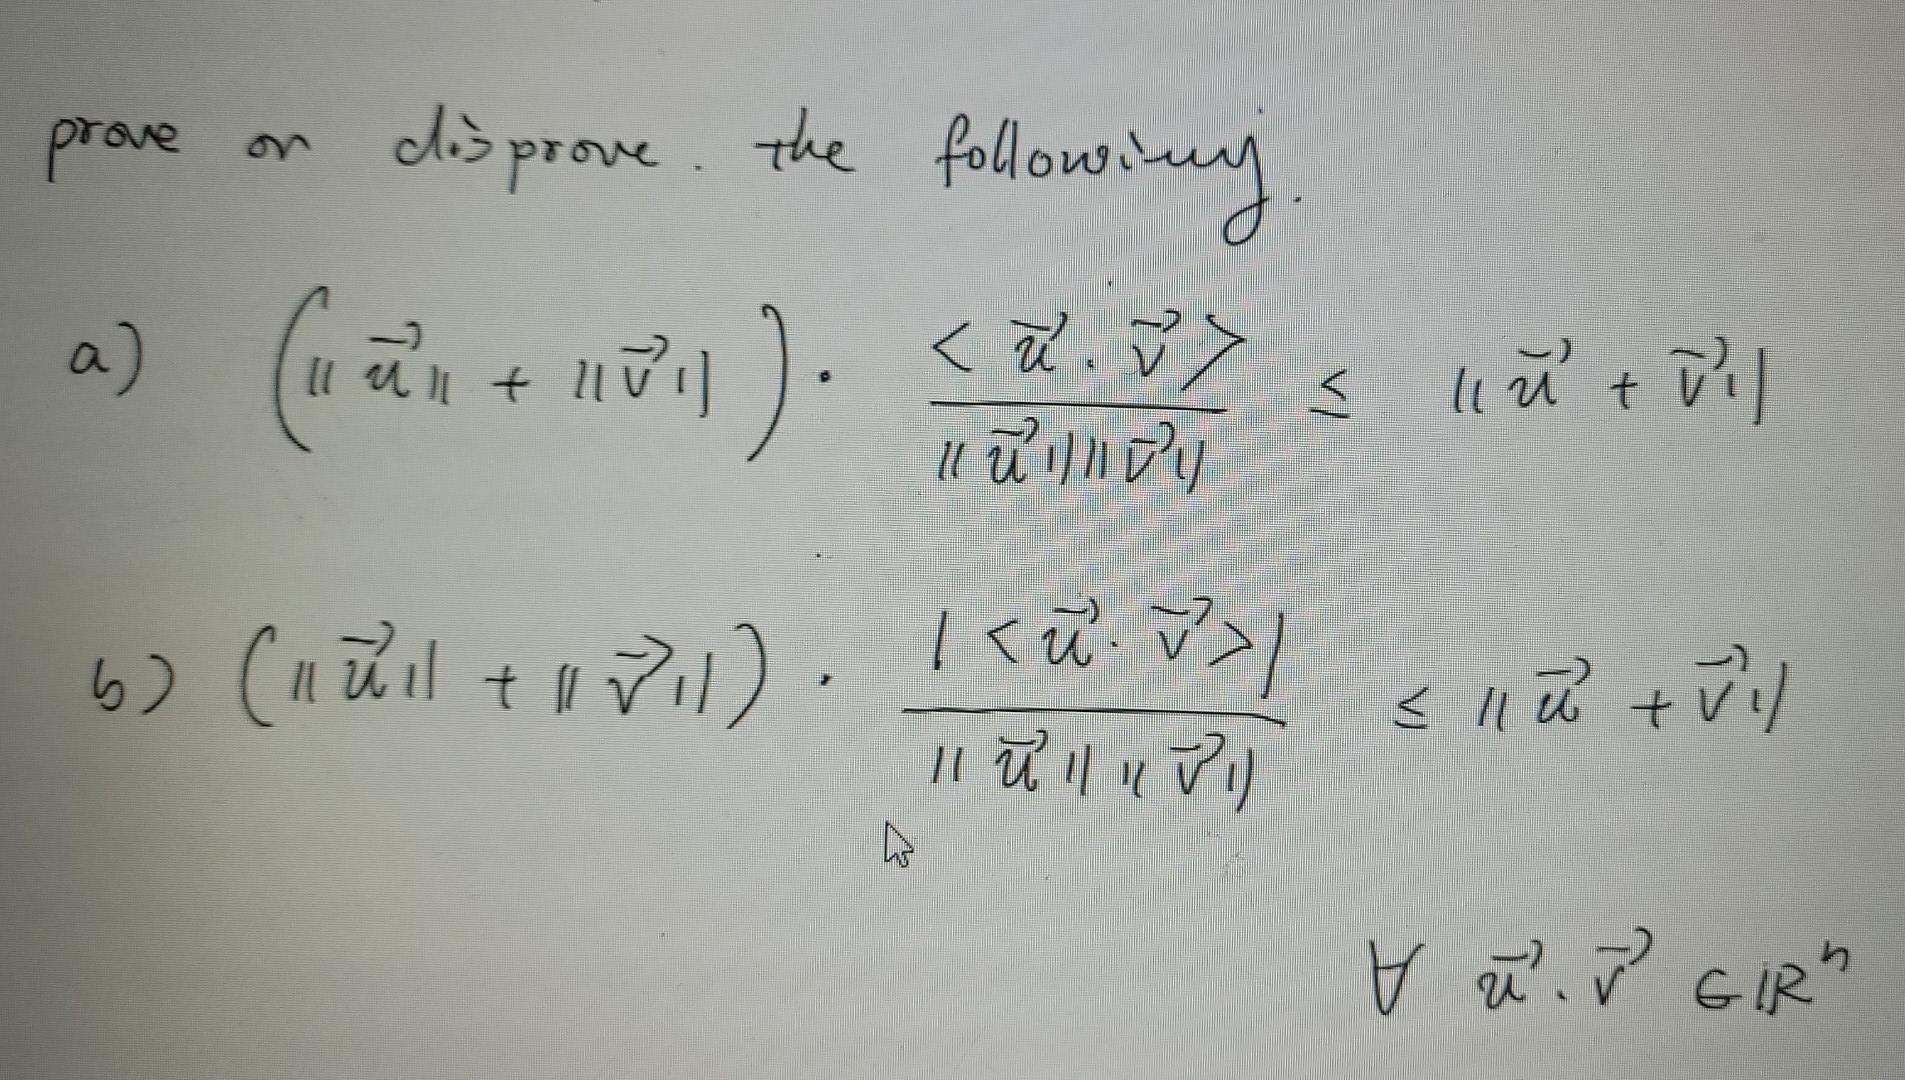 prove or disprove. the following.
a) (‖u⃗‖ + ‖v⃗‖) · <u⃗. v⃗> / ‖u⃗‖‖v⃗‖ ≤ ‖u⃗ + v⃗‖
b) (‖u⃗‖ + ‖v⃗‖) · |<u⃗. v⃗>| / ‖u⃗‖‖v⃗‖ ≤ ‖u⃗ + v⃗‖
∀ u⃗. v⃗ ∈ ℝⁿ